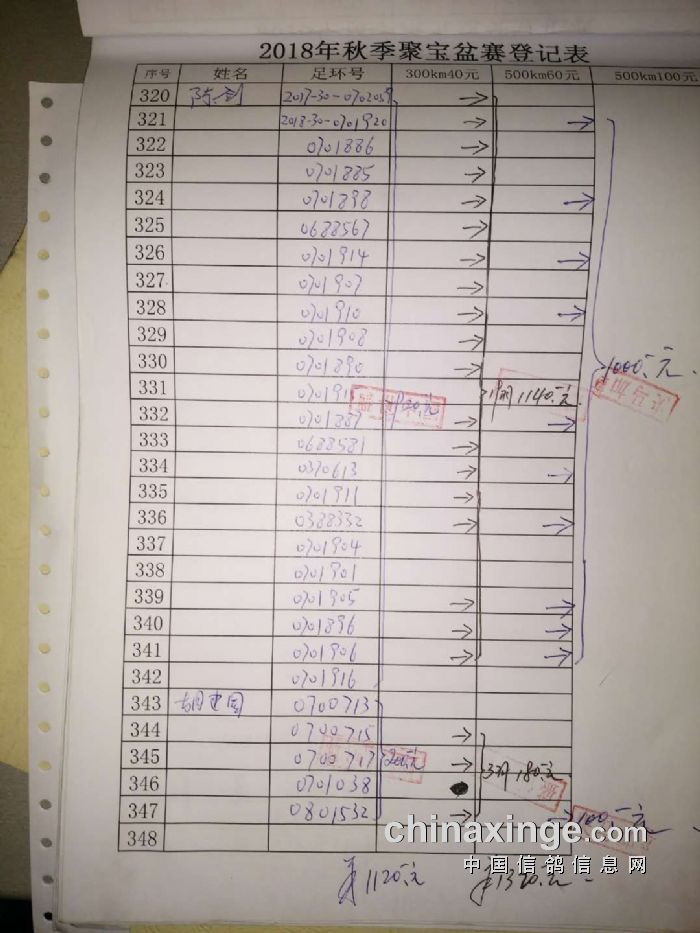 2018年秋季聚宝盆赛登记表
序号 姓名 足环号 300km40元 500km60元 500km100元
320 陈剑 2017-30-0702039
321 2018-30-0701920
322 0701886
323 0701885
324 0701898
325 0688567
326 0701914
327 0701907
328 0701910
329 0701908
330 0701890
1000元
331 1140元
332 0701887
333 0688581
334 0370613
335 0701911
336 0388332
337 0701904
338 0701901
339 0701905
340 0701896
341 0701906
342 0701916
343 0700713
344 0700715
345 0700717 200元 3羽180元
346 0701038
347 0801532 100元
348
chinaxinge.com
中国信鸽信息网
1120元 1320元